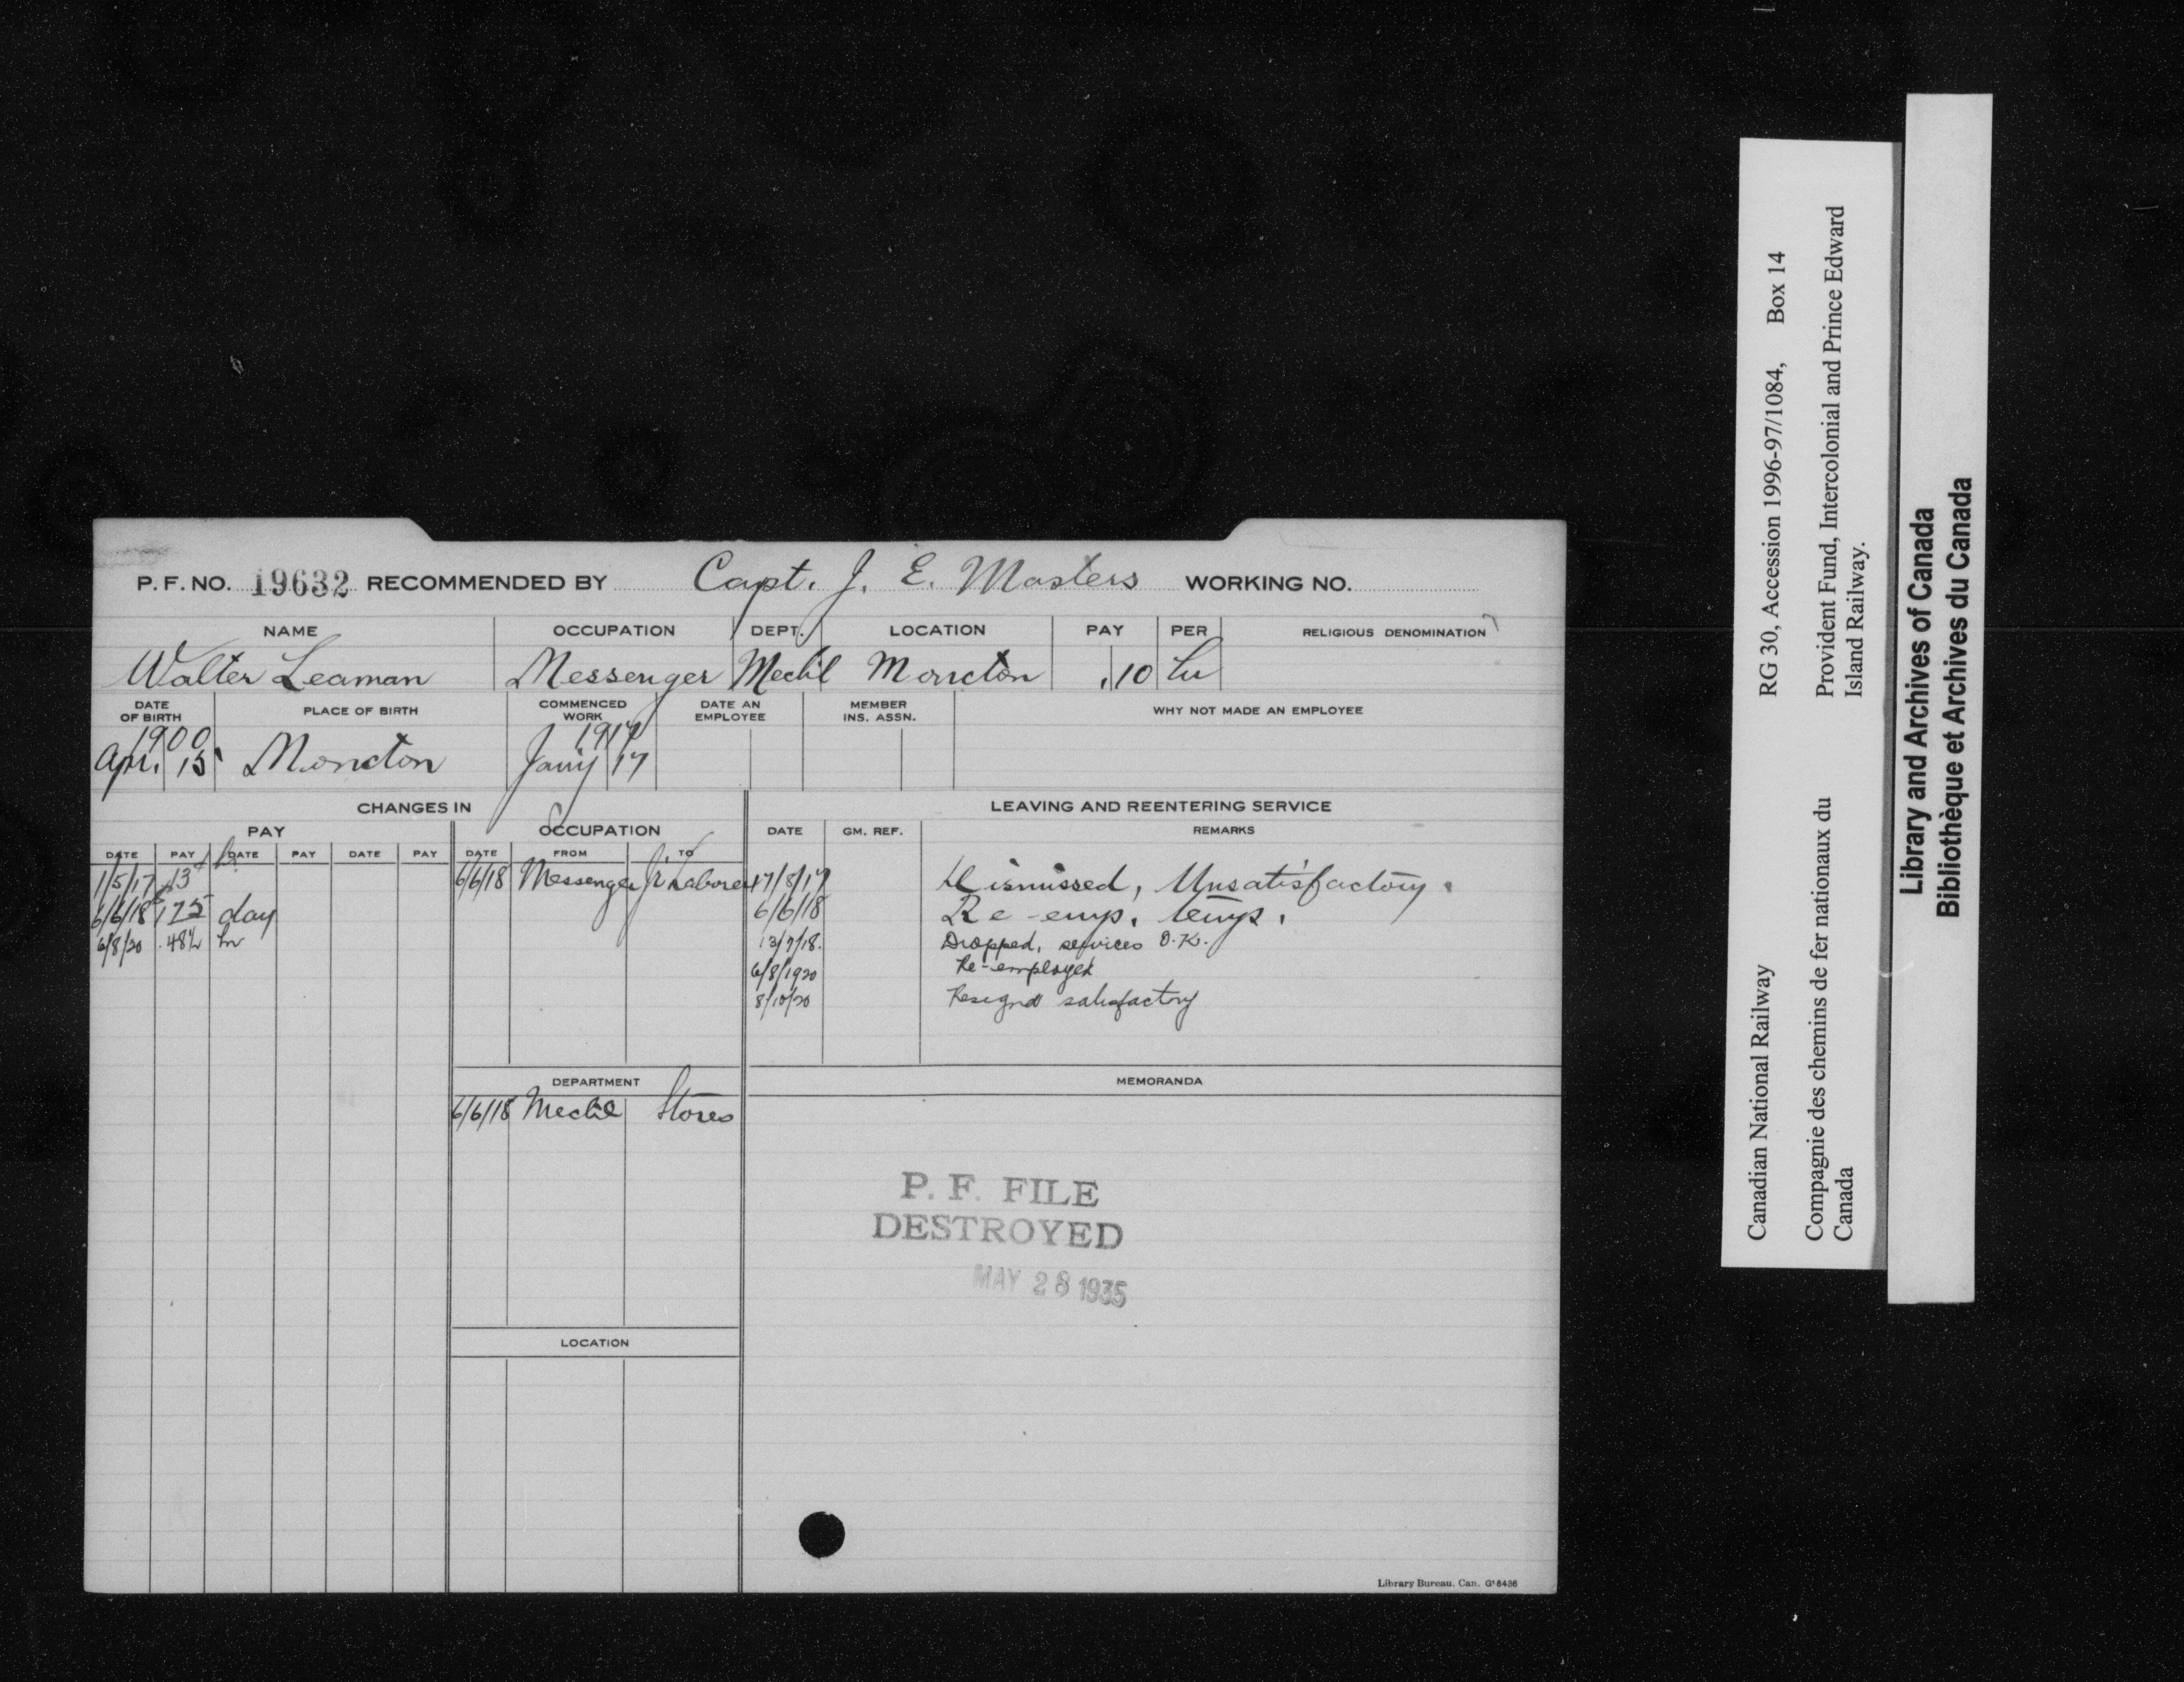 P. F. NO. 19632 RECOMMENDED BY Capt. J. E. Masters WORKING NO.
NAME OCCUPATION DEPT. LOCATION PAY PER RELIGIOUS DENOMINATION
Walter Leaman Messenger Mech'l Moncton .10 hr
DATE OF BIRTH PLACE OF BIRTH COMMENCED WORK DATE AN EMPLOYEE MEMBER INS. ASSN. WHY NOT MADE AN EMPLOYEE
1900 1917
Apr. 15 Moncton Jany 17
CHANGES IN LEAVING AND REENTERING SERVICE
PAY OCCUPATION DATE GM. REF. REMARKS
DATE PAY DATE PAY DATE PAY DATE FROM TO
1/5/17 13 hr 6/6/18 Messenger Jr. Laborer 17/8/17 Dismissed, Unsatisfactory.
6/6/18 $1.75 day 6/6/18 Re-emp. temp.
6/8/20 .48½ hr 13/7/18. Dropped, services O.K.
6/8/1920 Re-employed
8/10/20 Resigned satisfactory
DEPARTMENT MEMORANDA
6/6/18 Mech'l Stores
P. F. FILE
DESTROYED
MAY 28 1935
LOCATION
Library Bureau. Can. G18436
Canadian National Railway RG 30, Accession 1996-97/1084, Box 14
Compagnie des chemins de fer nationaux du Canada
Provident Fund, Intercolonial and Prince Edward Island Railway.
Library and Archives of Canada
Bibliothèque et Archives du Canada